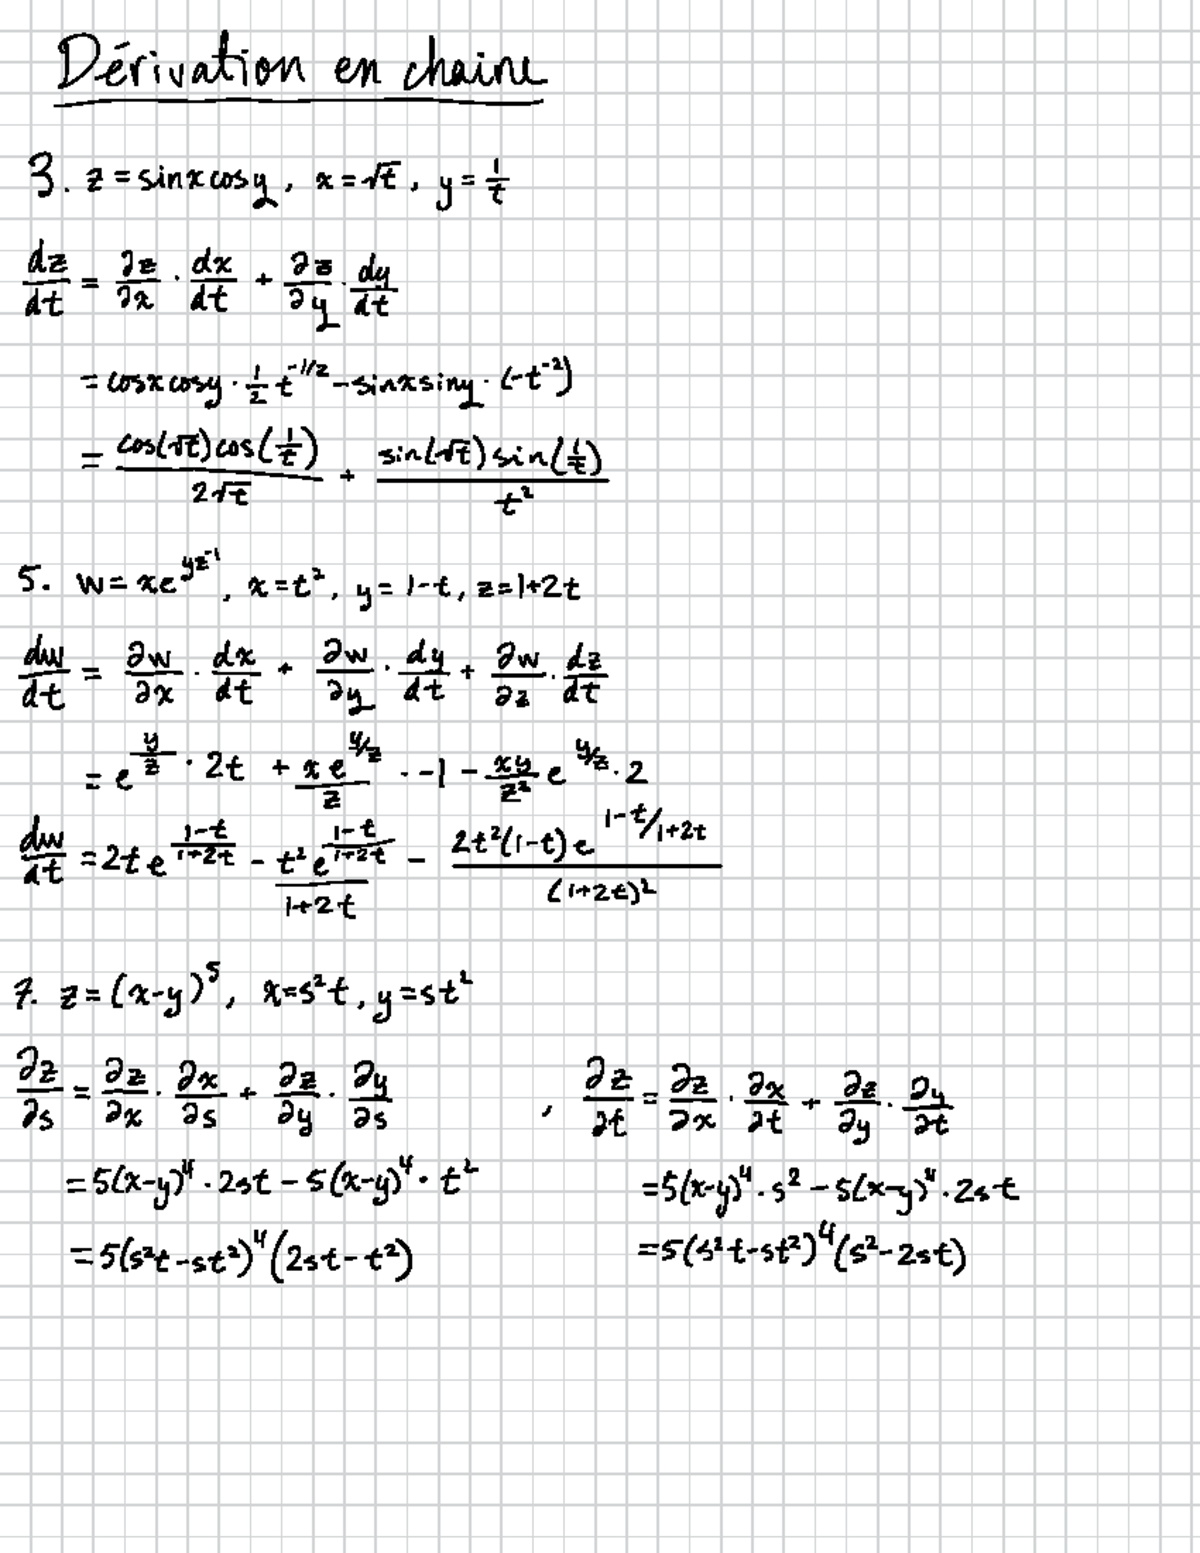 Dérivation en chaine
3. z = sinxcosy, x = √t, y = 1/t
dz/dt = ∂z/∂x · dx/dt + ∂z/∂y · dy/dt
= cosxcosy · 1/2 t^(-1/2) - sinxsiny · (-t^(-2))
= cos(√t)cos(1/t)/2√t + sin(√t)sin(1/t)/t²
5. w = xe^(yz^(-1)), x = t², y = 1-t, z = 1+2t
dw/dt = ∂w/∂x · dx/dt + ∂w/∂y · dy/dt + ∂w/∂z · dz/dt
= e^(y/z) · 2t + xe^(y/z)/z · -1 - xy/z² e^(y/z) · 2
dw/dt = 2te^((1-t)/(1+2t)) - t²e^((1-t)/(1+2t))/(1+2t) - 2t²(1-t)e^(1-t/1+2t)/(1+2t)²
7. z = (x-y)⁵, x = s²t, y = st²
∂z/∂s = ∂z/∂x · ∂x/∂s + ∂z/∂y · ∂y/∂s , ∂z/∂t = ∂z/∂x · ∂x/∂t + ∂z/∂y · ∂y/∂t
= 5(x-y)⁴ · 2st - 5(x-y)⁴ · t² = 5(x-y)⁴ · s² - 5(x-y)⁴ · 2st
= 5(s²t - st²)⁴(2st - t²) = 5(s²t - st²)⁴(s² - 2st)